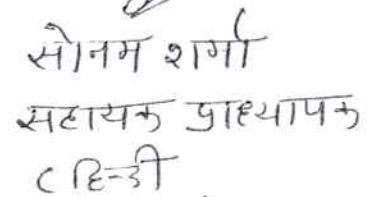 सोनम शर्मा
सहायक प्राध्यापक
(हिन्दी